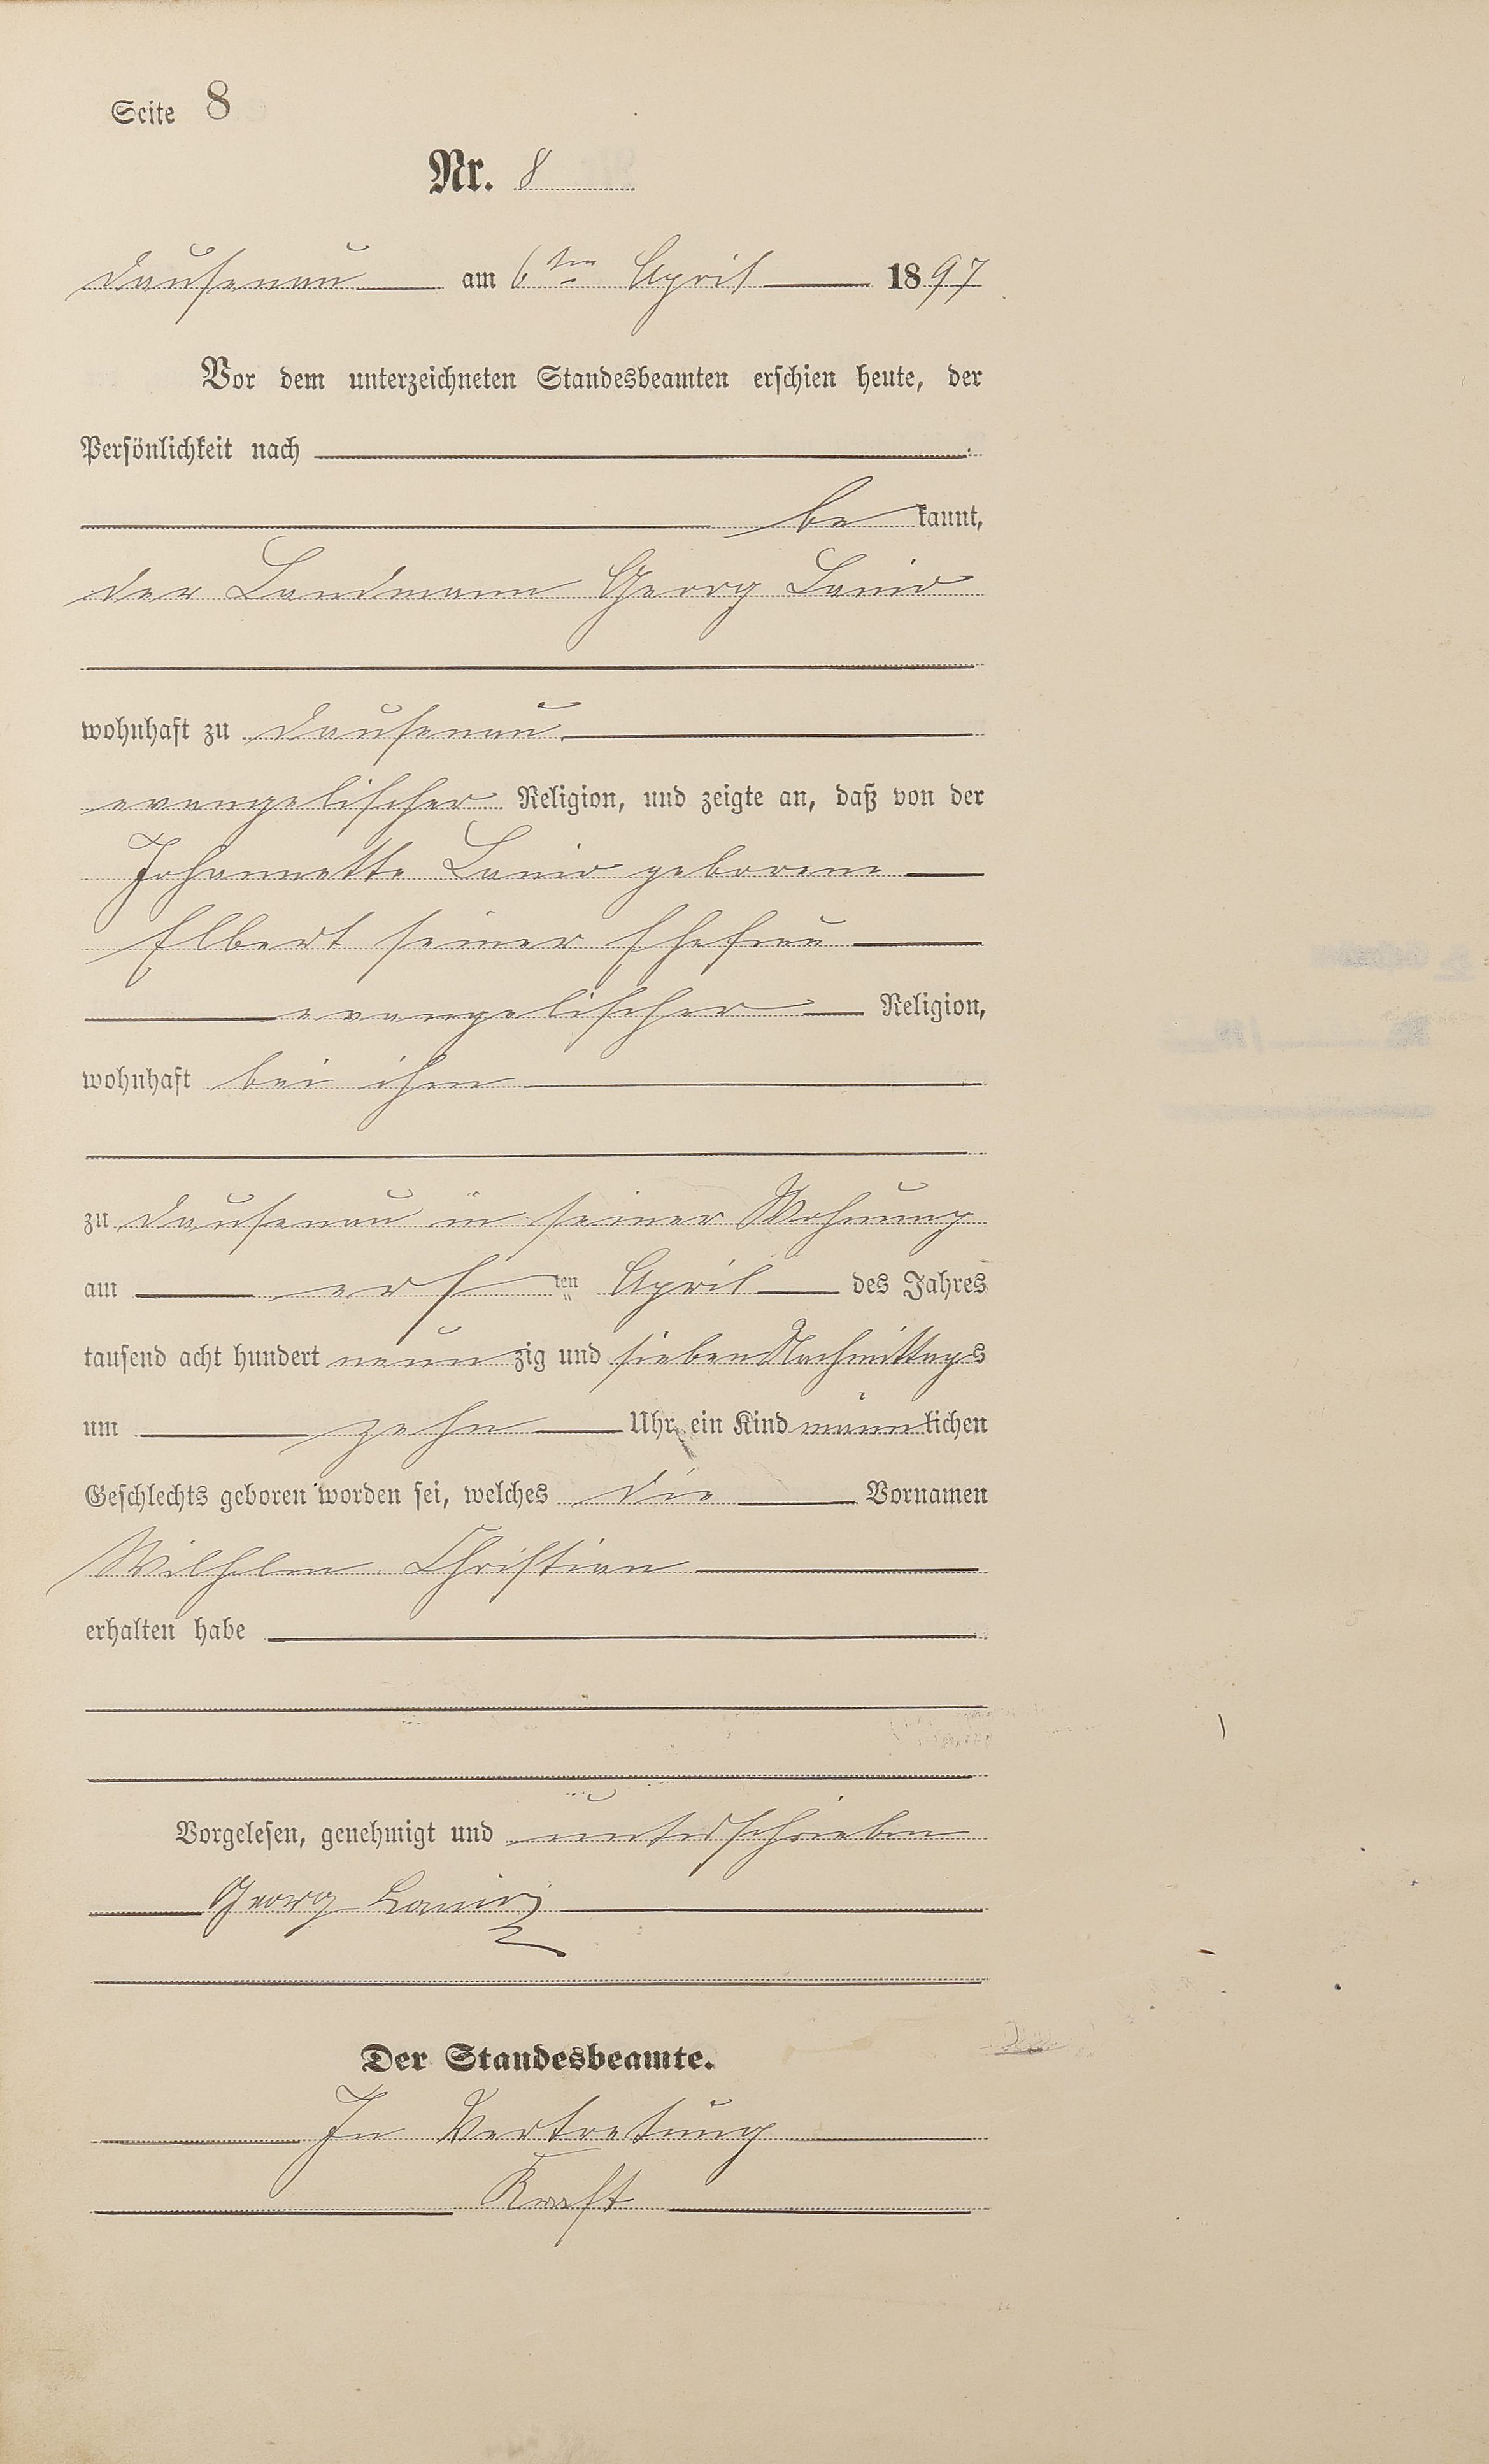 Seite 8
Nr. 8
Dausenau am 6ten April 1897
Vor dem unterzeichneten Standesbeamten erschien heute, der
Persönlichkeit nach
bekannt,
der Landmann Georg Lanio
wohnhaft zu Dausenau
evangelischer Religion, und zeigte an, daß von der
Johannette Lanio geborene
Elbert seiner Ehefrau
evangelischer Religion,
wohnhaft bei ihm
zu Dausenau in seiner Wohnung
am ersten April des Jahres
tausend acht hundert neunzig und sieben Nachmittags
um zehn Uhr ein Kind männlichen
Geschlechts geboren worden sei, welches die Vornamen
Wilhelm Christian
erhalten habe
Vorgelesen, genehmigt und unterschrieben
Georg Lanio
Der Standesbeamte.
In Vertretung
Kraft